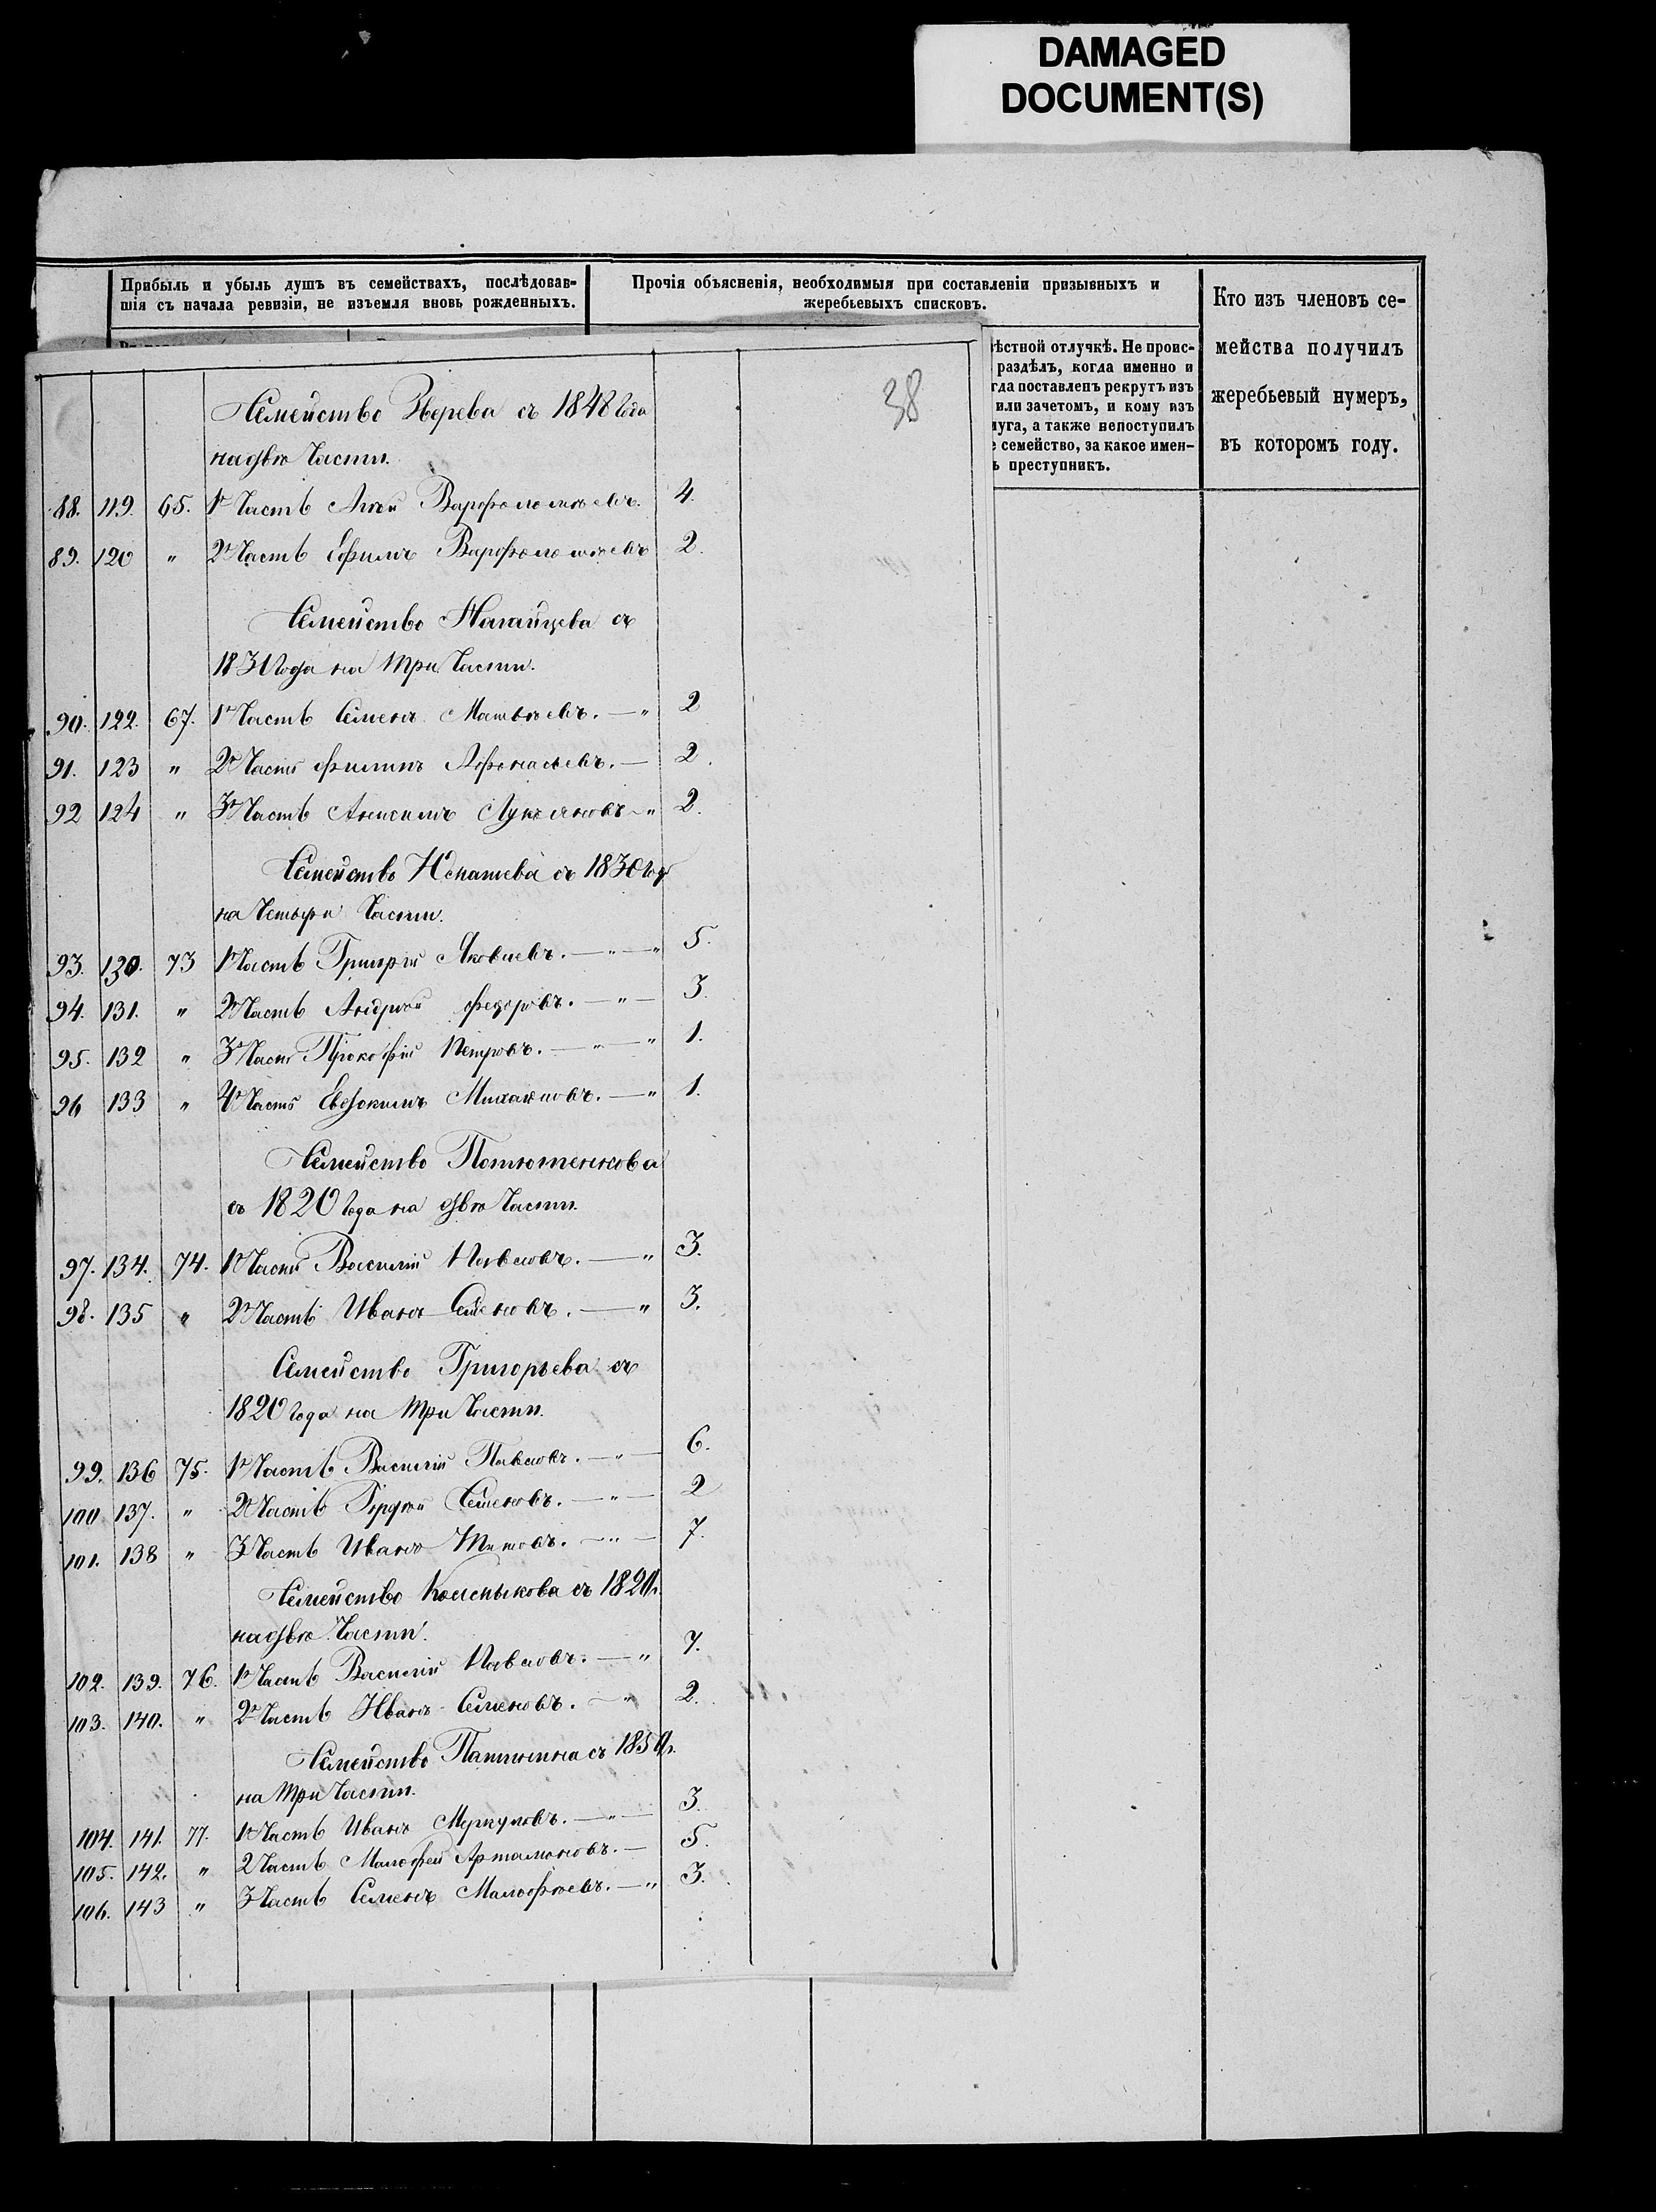 DAMAGED
DOCUMENT(S)
Прибыль и убыль душъ въ семействахъ, послѣдовав-
шія съ начала ревизіи, не изъемля вновь рожденныхъ.
Прочія объясненія, необходимыя при составленіи призывныхъ и
жеребьевыхъ списковъ.
Кто изъ членовъ се-
мейства получилъ
жеребьевый нумеръ,
въ которомъ году.
ѣстной отлучкѣ. Не проис-
раздѣлъ, когда именно и
гда поставленъ рекрутъ изъ
или зачетомъ, и кому изъ
луга, а также непоступилъ
е семейство, за какое имен-
ъ преступникъ.
38
Семейство Зверева съ 1848 года
на двѣ Части.
88. 119. 65. 1я Часть Агѣй Варфоломѣевъ. 4.
89. 120 „ 2я Часть Ефимъ Варфоломѣевъ 2.
Семейство Нагайцева съ
1831 года на три Части.
90. 122. 67. 1я Часть Семенъ Матвѣевъ. — „ 2
91. 123 „ 2я Часть Филипъ Афонасьевъ. — 2.
92 124 „ 3я Часть Анисимъ Лукьяновъ — „ 2.
Семейство Игнатева съ 1830 год
на Четыри Части.
93. 130. 73 1я Часть Григрій Яковлевъ. — „ — „ 5.
94. 131. „ 2я Часть Андрѣй Федоровъ. — „ — 3.
95. 132 „ 3я Часть Прокофій Петровъ. — „ — „ 1.
96 133 „ 4я Часть Евдокимъ Михайловъ. — „ 1.
Семейство
съ 1820 года на двѣ Части.
97. 134. 74. 1я Часть Василій Павловъ. — „ 3.
98. 135 „ 2я Часть Иванъ Семеновъ. — „ 3.
Семейство Григорьева съ
1820 года на три Части.
99. 136 75. 1я Часть Василій Павловъ. — „ — 6.
100 137. „ 2я Часть Гордѣй Семеновъ. — „ — 2
101. 138 „ 3 Часть Иванъ Титовъ. — „ — 7.
Семейство съ 1820 г.
на двѣ Части.
102. 139. 76. 1я Часть Василій Павловъ. — „ 7.
103. 140. „ 2я Часть Иванъ Семеновъ. — „ 2.
Семейство съ 1850 г.
на три Части.
104. 141. 77. 1я Часть Иванъ Меркуловъ. — „ — 3.
105. 142. „ 2 Часть Малофей Артамоновъ. — 5.
106. 143 „ 3 Часть Семенъ Малофѣевъ. — „ 3.